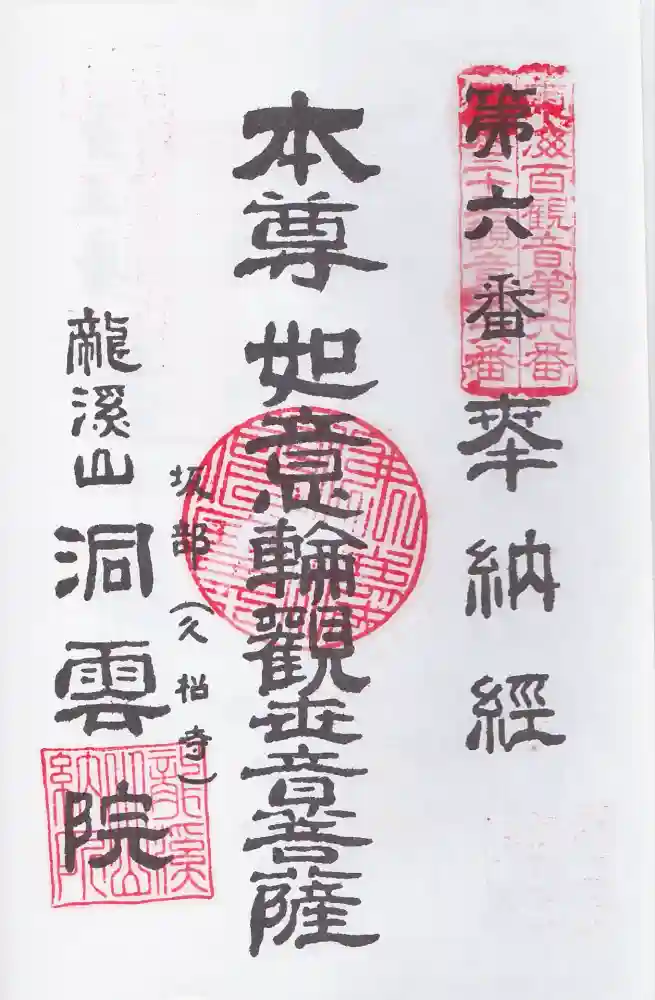 第六番 奉納経
南海百観音第六番
本尊 如意輪觀世音菩薩
坂部(久松寺)
龍溪山 洞雲院
龍溪山納所